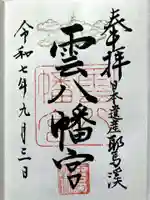 奉拝
日本遺産耶馬渓
雲八幡宮
令和七年九月三日